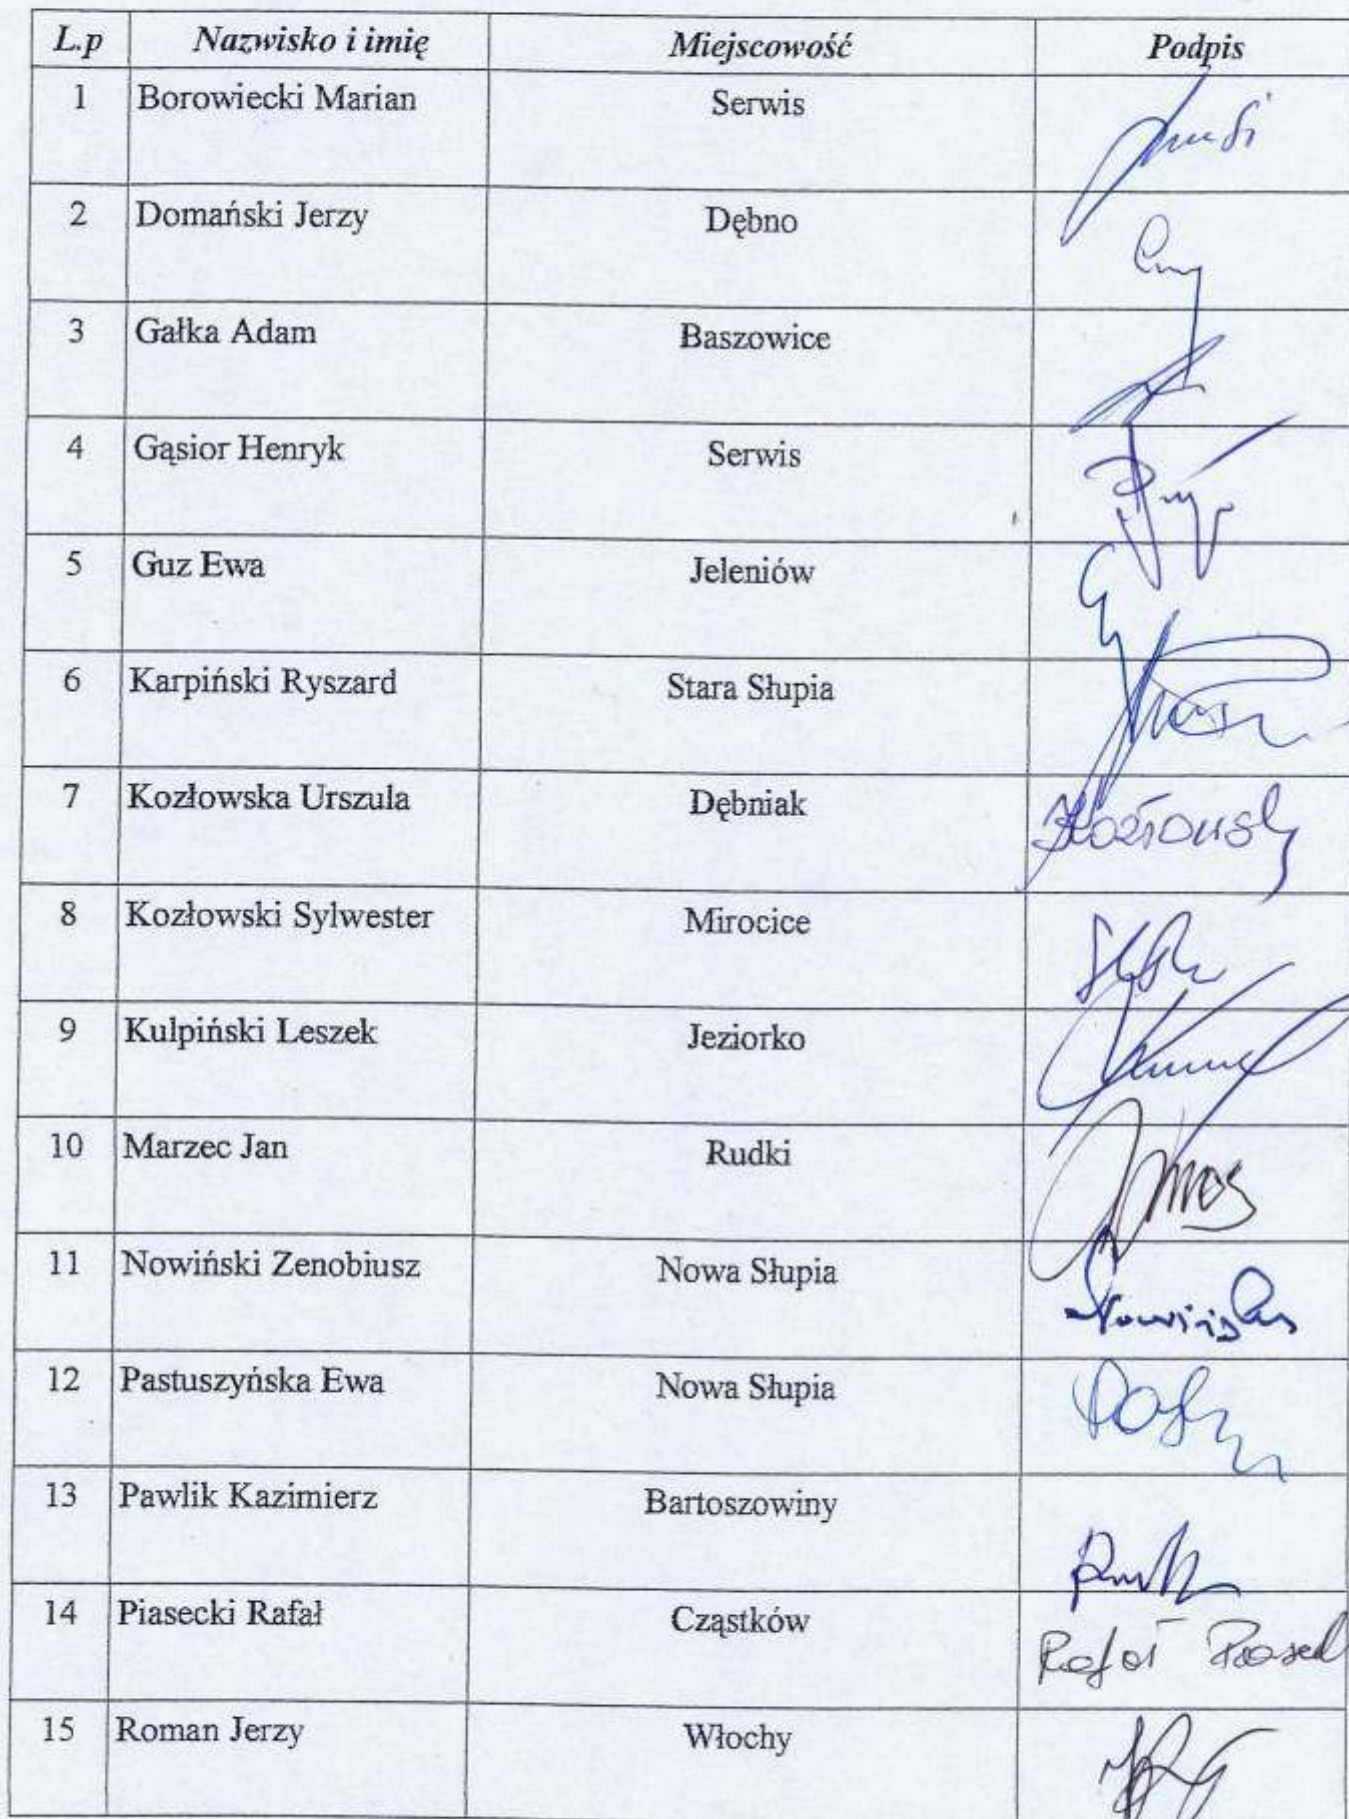 L.p Nazwisko i imię Miejscowość Podpis
1 Borowiecki Marian Serwis
2 Domański Jerzy Dębno
3 Gałka Adam Baszowice
4 Gąsior Henryk Serwis
5 Guz Ewa Jeleniów
6 Karpiński Ryszard Stara Słupia
7 Kozłowska Urszula Dębniak
8 Kozłowski Sylwester Mirocice
9 Kulpiński Leszek Jeziorko
10 Marzec Jan Rudki
11 Nowiński Zenobiusz Nowa Słupia
12 Pastuszyńska Ewa Nowa Słupia
13 Pawlik Kazimierz Bartoszowiny
14 Piasecki Rafał Cząstków Rafał
15 Roman Jerzy Włochy